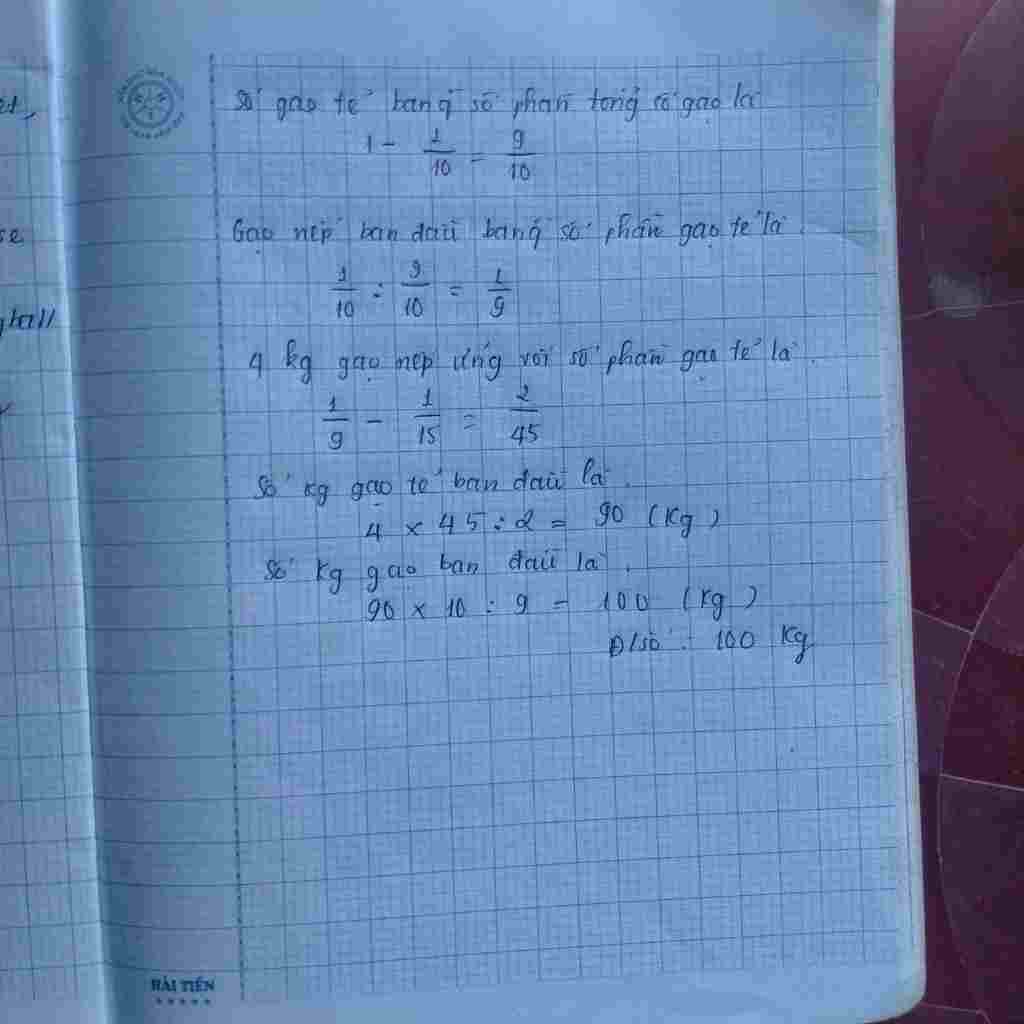 et,
se
Số gạo tẻ bằng số phần tổng số gạo là
1 - 1/10 = 9/10
Gạo nếp ban đầu bằng số phần gạo tẻ là.
1/10 : 9/10 = 1/9
4 kg gạo nếp ứng với số phần gạo tẻ là.
1/9 - 1/15 = 2/45
Số kg gạo tẻ ban đầu là.
4 x 45 : 2 = 90 (kg)
Số kg gạo ban đầu là.
90 x 10 : 9 = 100 (kg)
Đ/số : 100 kg
HẢI TIẾN